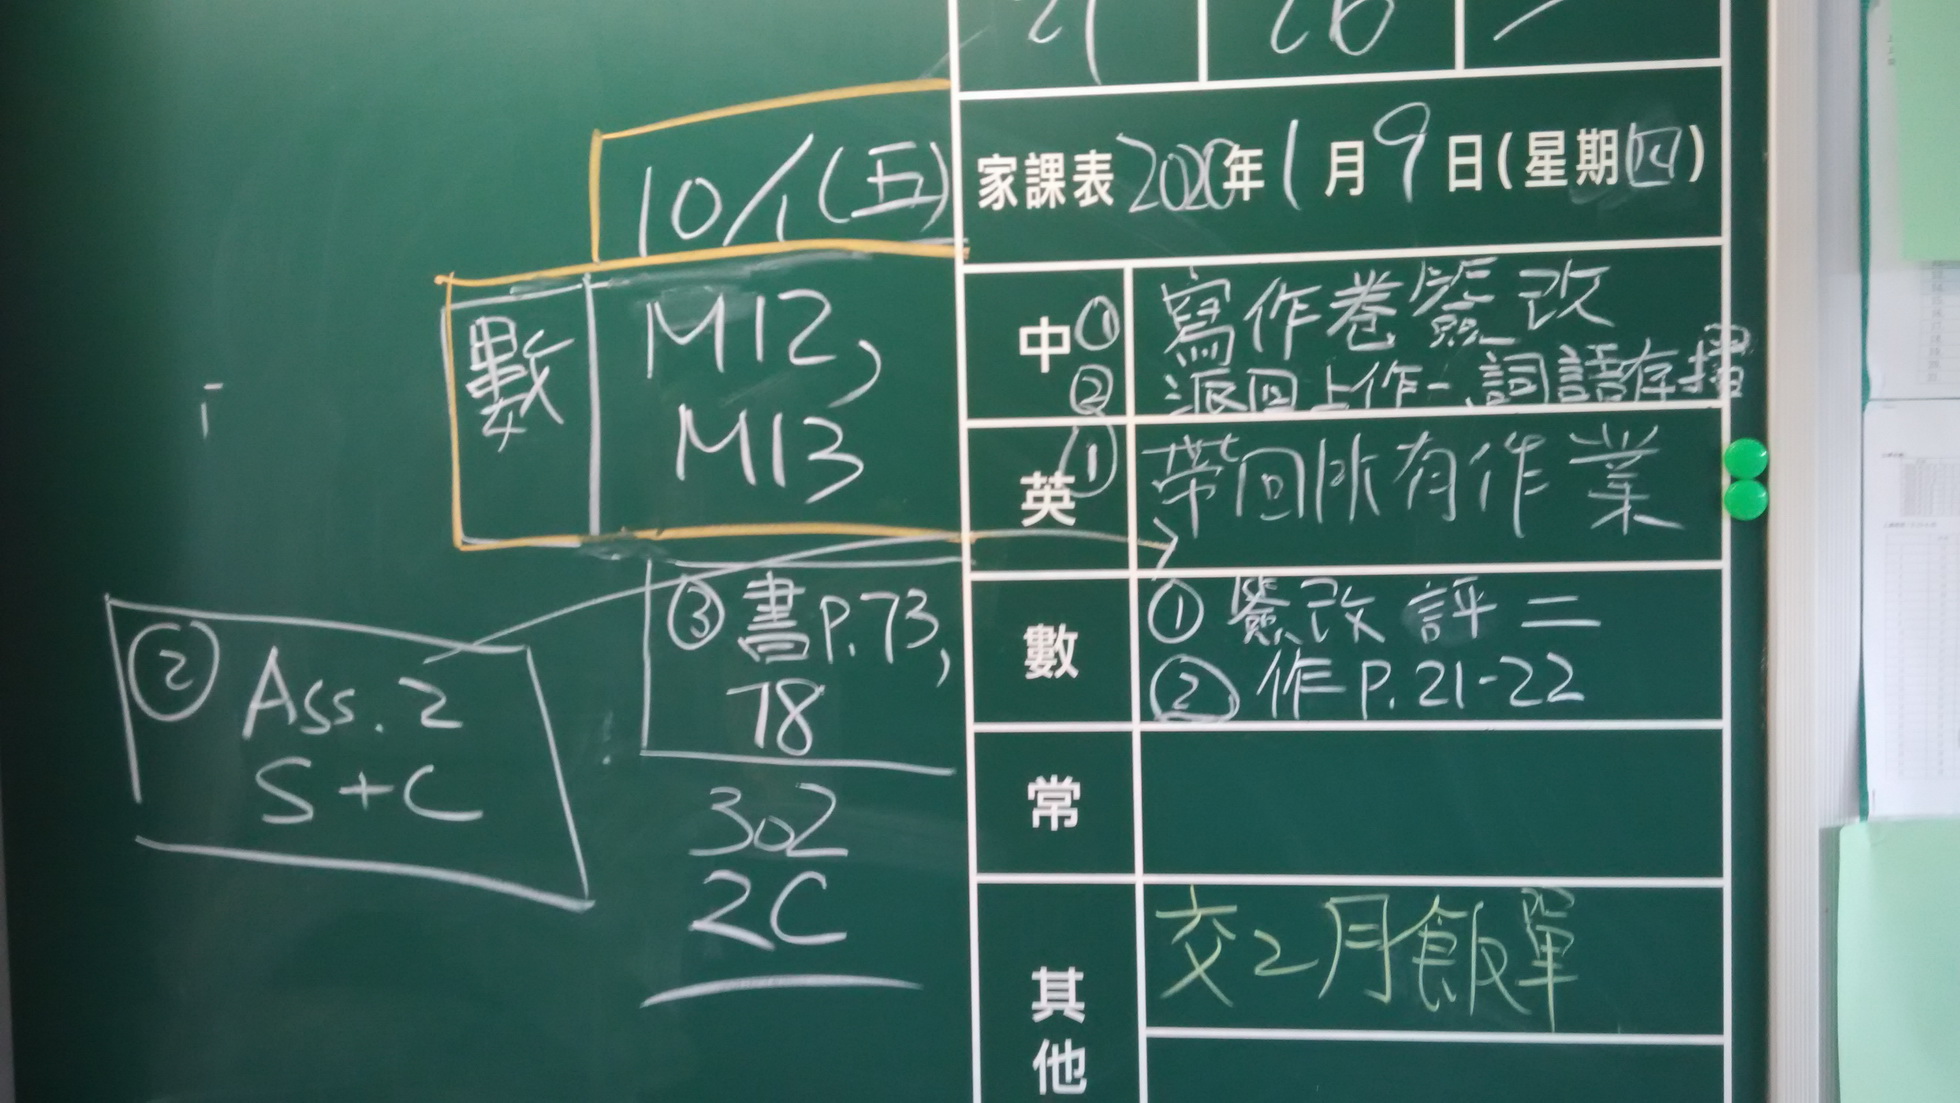 21 26
家課表2020年1月9日(星期四)
中 ① 寫作卷簽改
② 派回上作一、詞語存摺
英 ① 帶回所有作業
數 ① 簽改評二
② 作P.21-22
常
其他 交2月飯單
10/1(五)
數 M12,
M13
② Ass. 2
S+C
③ 書P.73,
78
302
2C